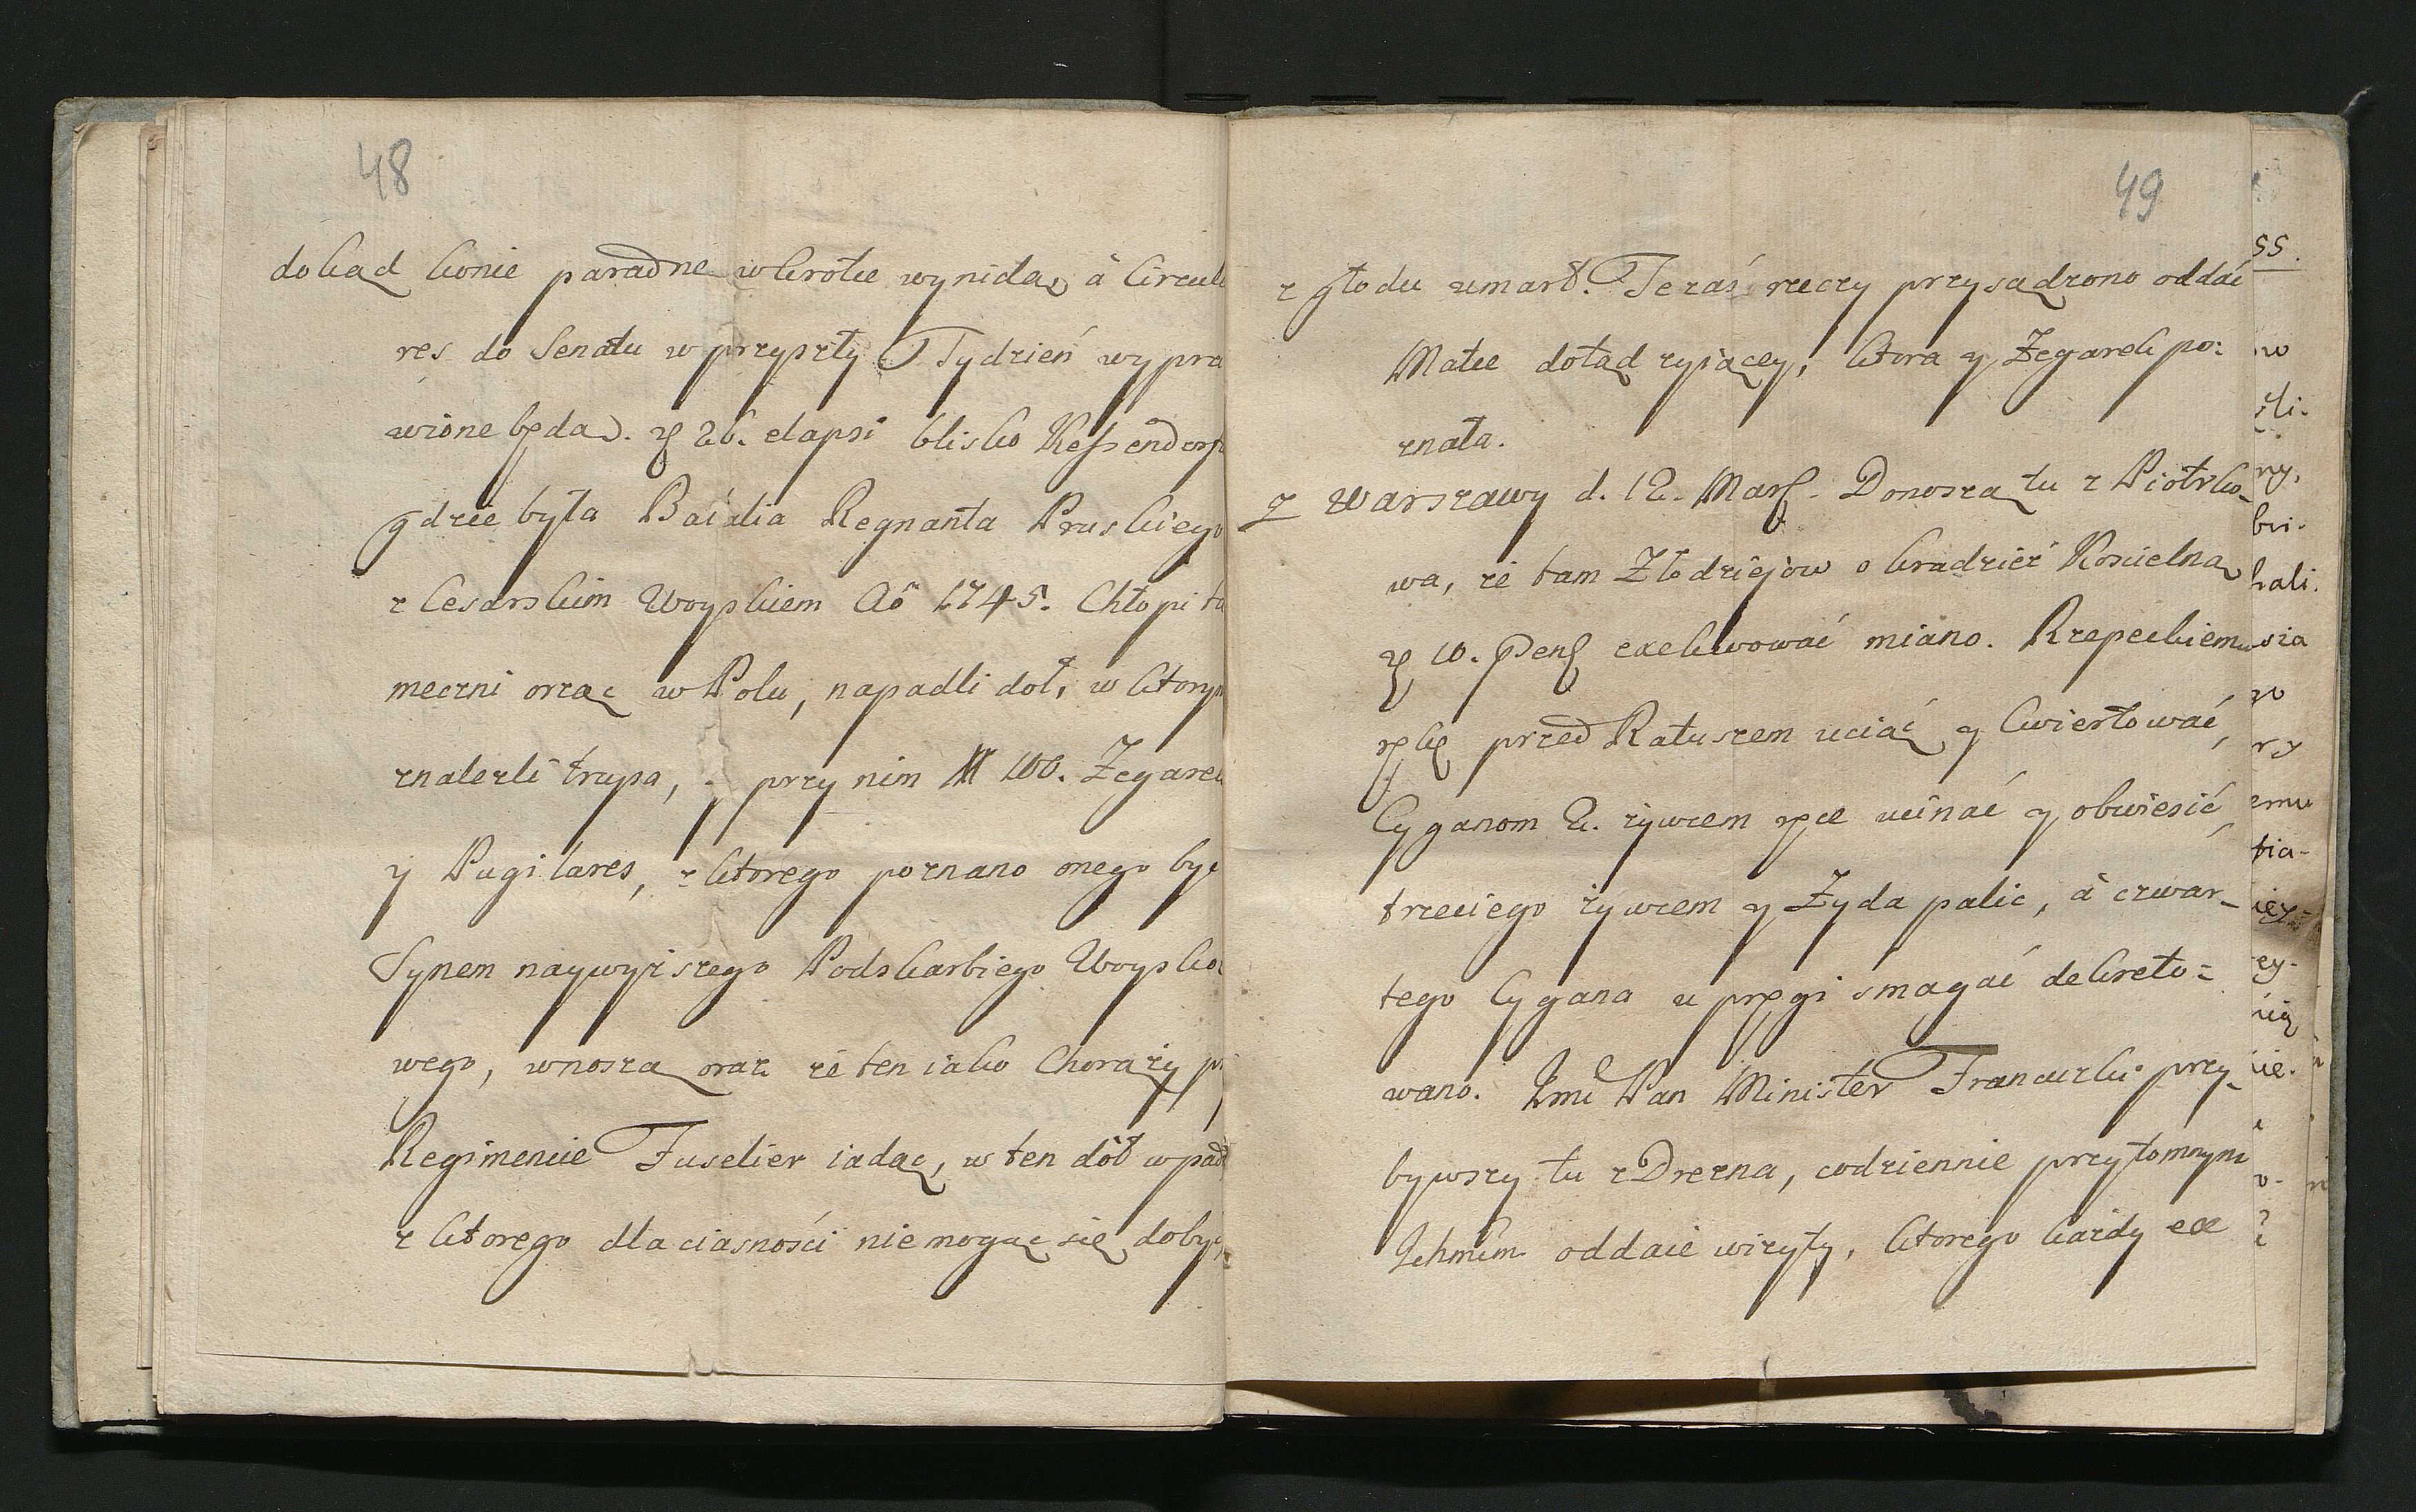 48
dokąd konie paradne wkrotce wynidą, à Circula
res do Senatu w przyszły Tydzień wypra
wione będą. 26. elapsi blisko Kessendorf
gdzie była Batalia Regnanta Pruskiego
z Cesarskim Woyskiem Aõ 1745. Chłopi ta
meczni orząc w Polu, napadli doł, w ktorym
znalezli trupa, przy nim 100. Zegarek
y Pugilares, z ktorego poznano onego być
Synem naywyższego Podskarbiego Woysko
wego, wnoszą oraz że ten iako Chorąży p
Regimencie Fuselier iadąc, w ten dół wpadł
z ktorego dla ciasności nie mogąc się dobyć,
49
z głodu umarł. Teraś rzeczy przysądzono oddać
Matce dotąd żyiącey, ktora y Zegarek po:
znała.
z Warszawy d. 12. Mar. Donoszą tu z Piotrko-
wa, że tam Złodzieiow o kradzież Koscielną
10. Pens exekwować miano. Rzepeckiemu
rękę przed Ratuszem uciąć y ćwiertować,
Cyganom 2. żywcem ręce ucinać y obwiesić,
trzeciego żywcem y Żyda palic, à czwar-
tego Cygana u pręgi smagać dekreto-
wano. Jmć Pan Minister Francuzki przy-
bywszy tu z Drezna, codziennie przytomnym
Ichmćm oddaie wizyty, ktorego każdy ex